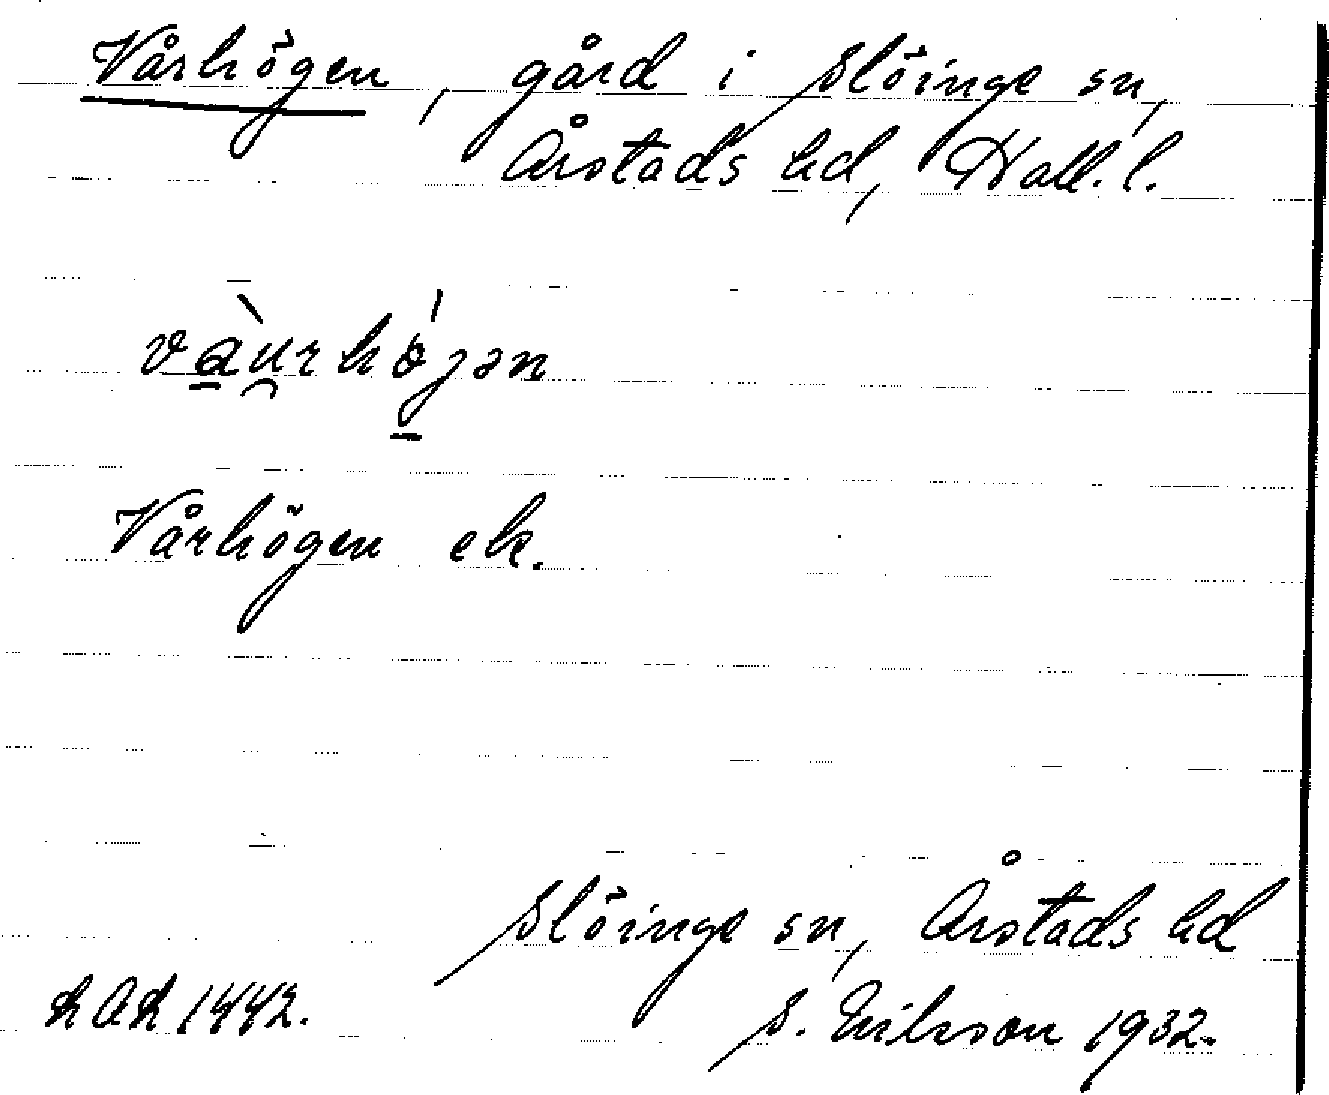 Vårhögen, gård i Slöinge sn,
Årstads hd, Hall. l.
và̱u̯rhǿ̱jən
Vårhögen ek.
Slöinge sn, Årstads hd
LAL 1442.
S. Nilsson 1932.